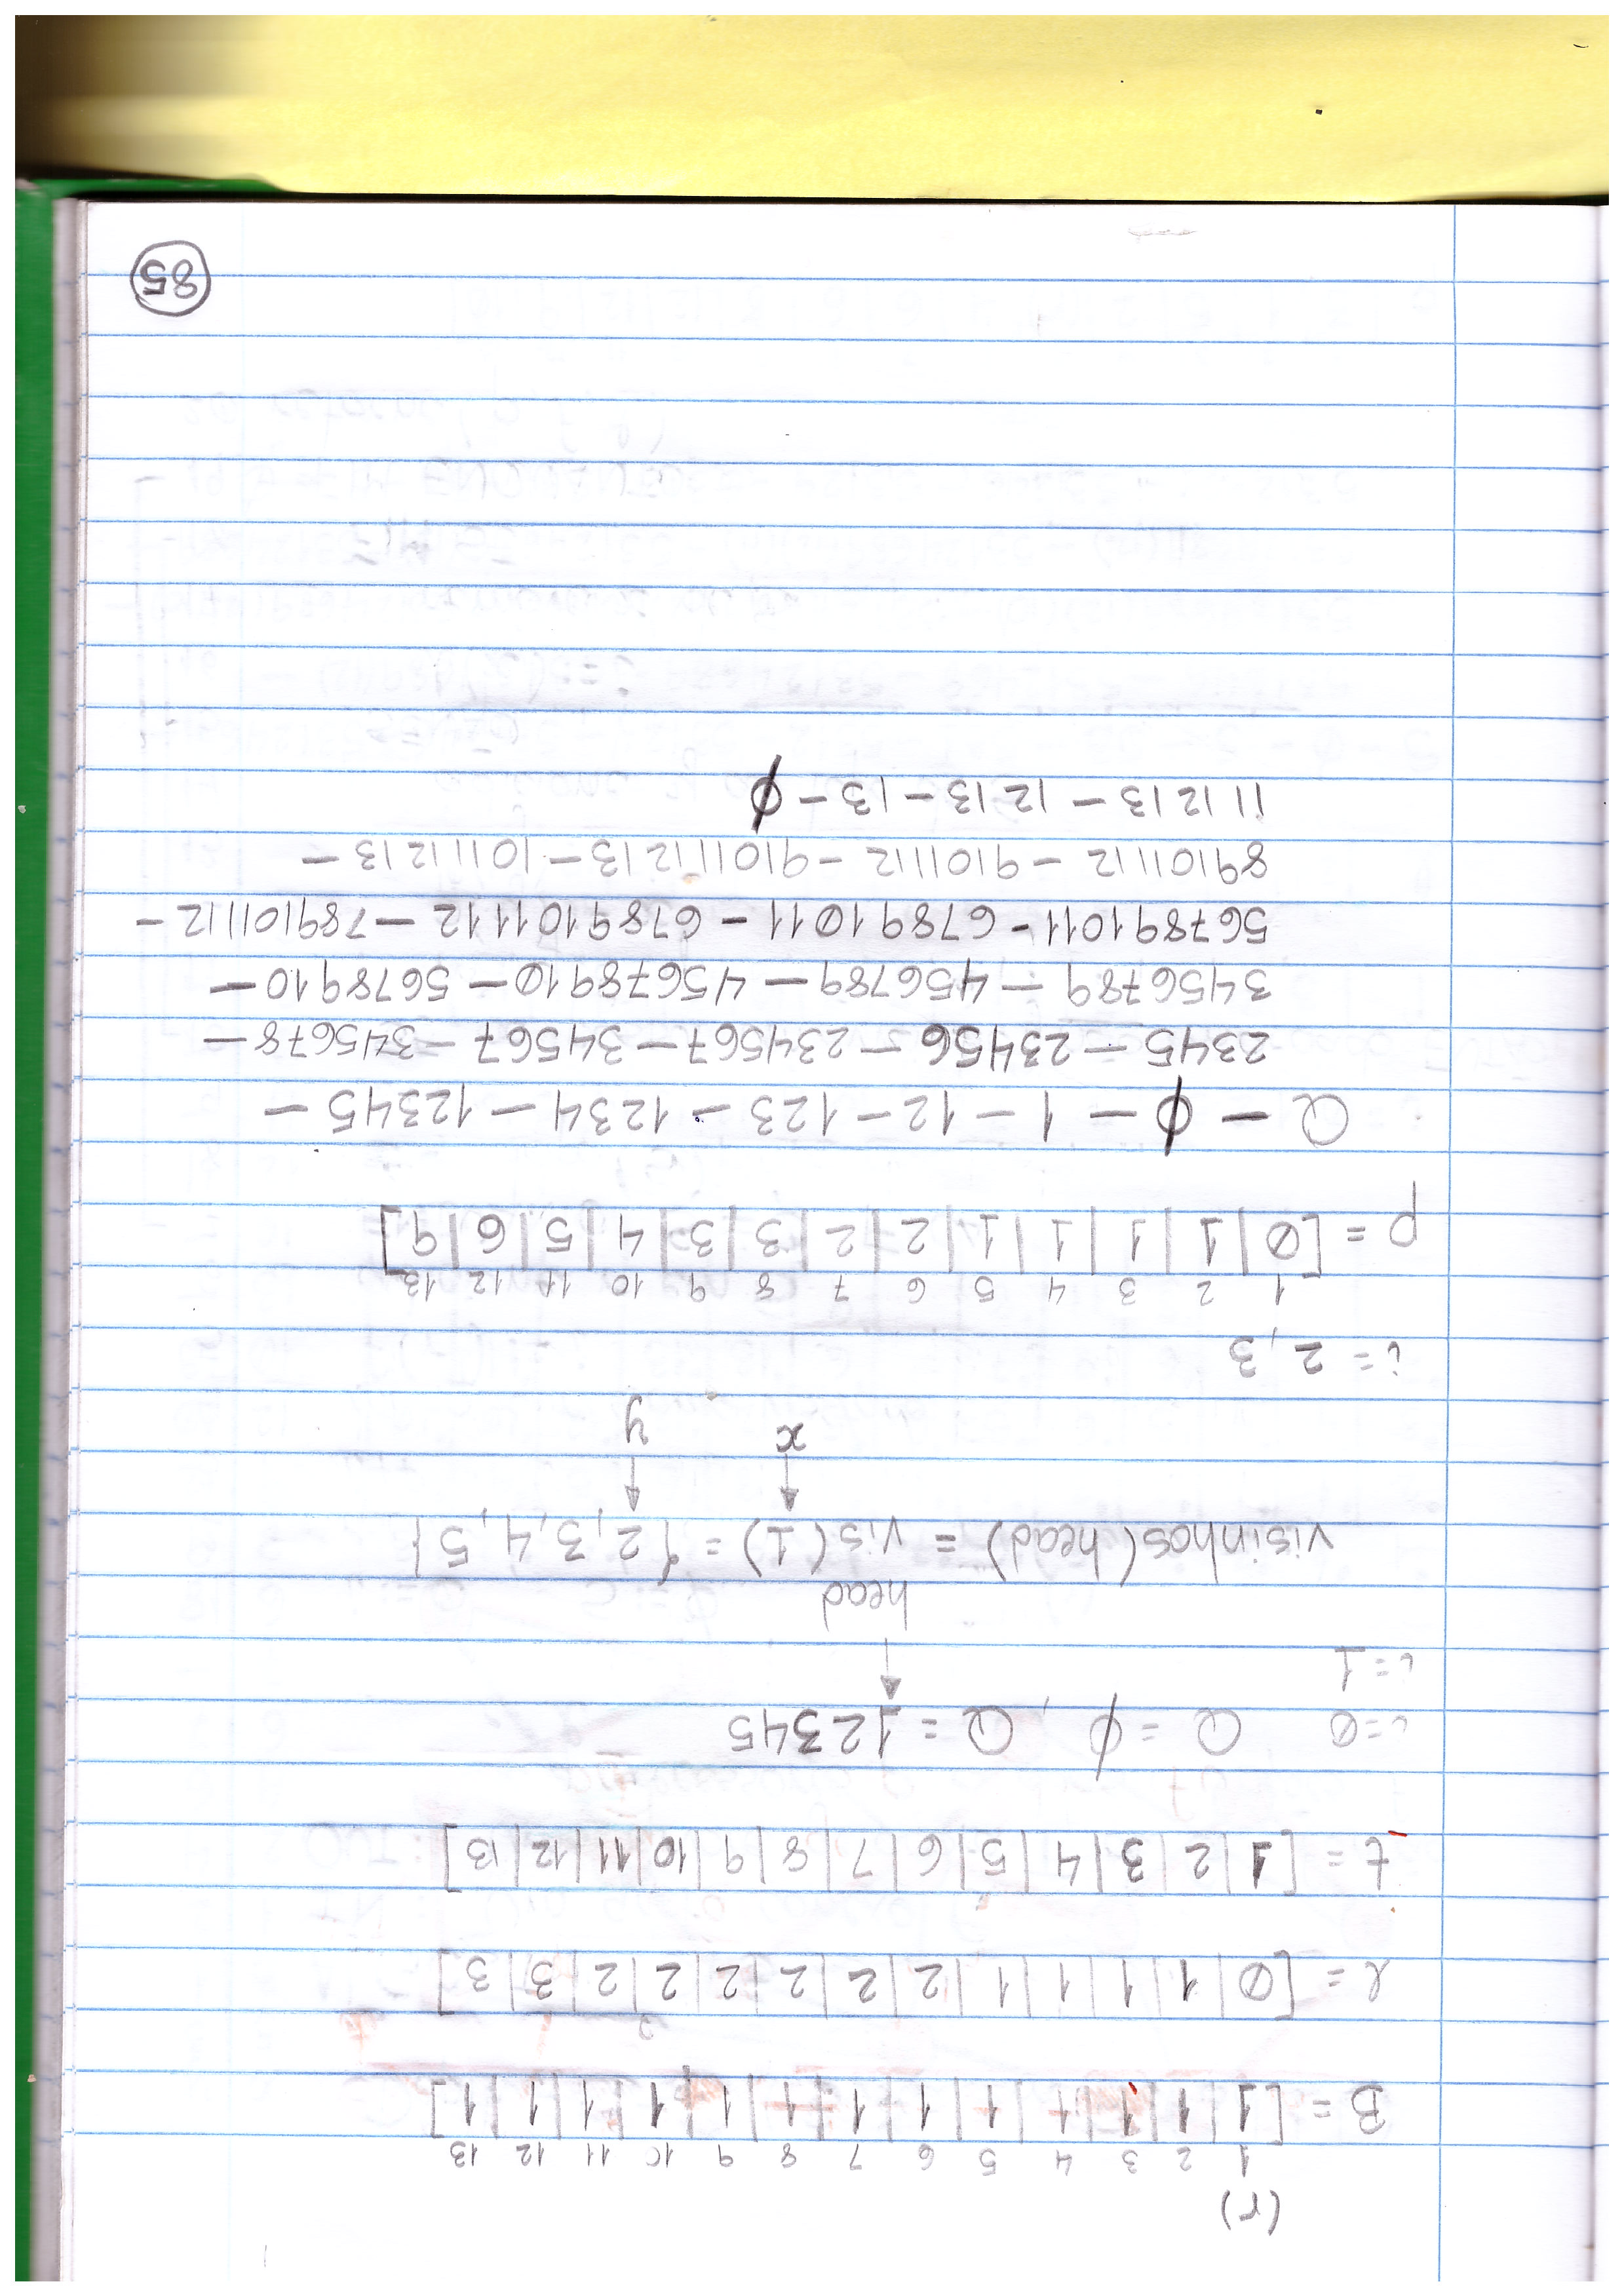 (r)
1 2 3 4 5 6 7 8 9 10 11 12 13
B = [1|1|1|1|1|1|1|1|1|1|1|1|1]
l = [0|1|1|1|1|2|2|2|2|2|2|3|3]
t = [1|2|3|4|5|6|7|8|9|10|11|12|13]
i=0 Q = ∅, Q = 12345
i=1
head
visinhos(head) = vis(1) = {2,3,4,5}
x y
i= 2,3
1 2 3 4 5 6 7 8 9 10 11 12 13
p = [0|1|1|1|1|2|2|3|3|4|5|6|9]
Q — ∅ — 1 — 12 — 123 — 1234 — 12345 —
2345 — 23456 — 234567 — 34567 — 345678 —
3456789 — 456789 — 45678910 — 5678910 —
567891011 - 67891011 - 6789101112 — 789101112 -
89101112 - 9101112 - 910111213 - 10111213 -
111213 - 1213 - 13 - ∅
85